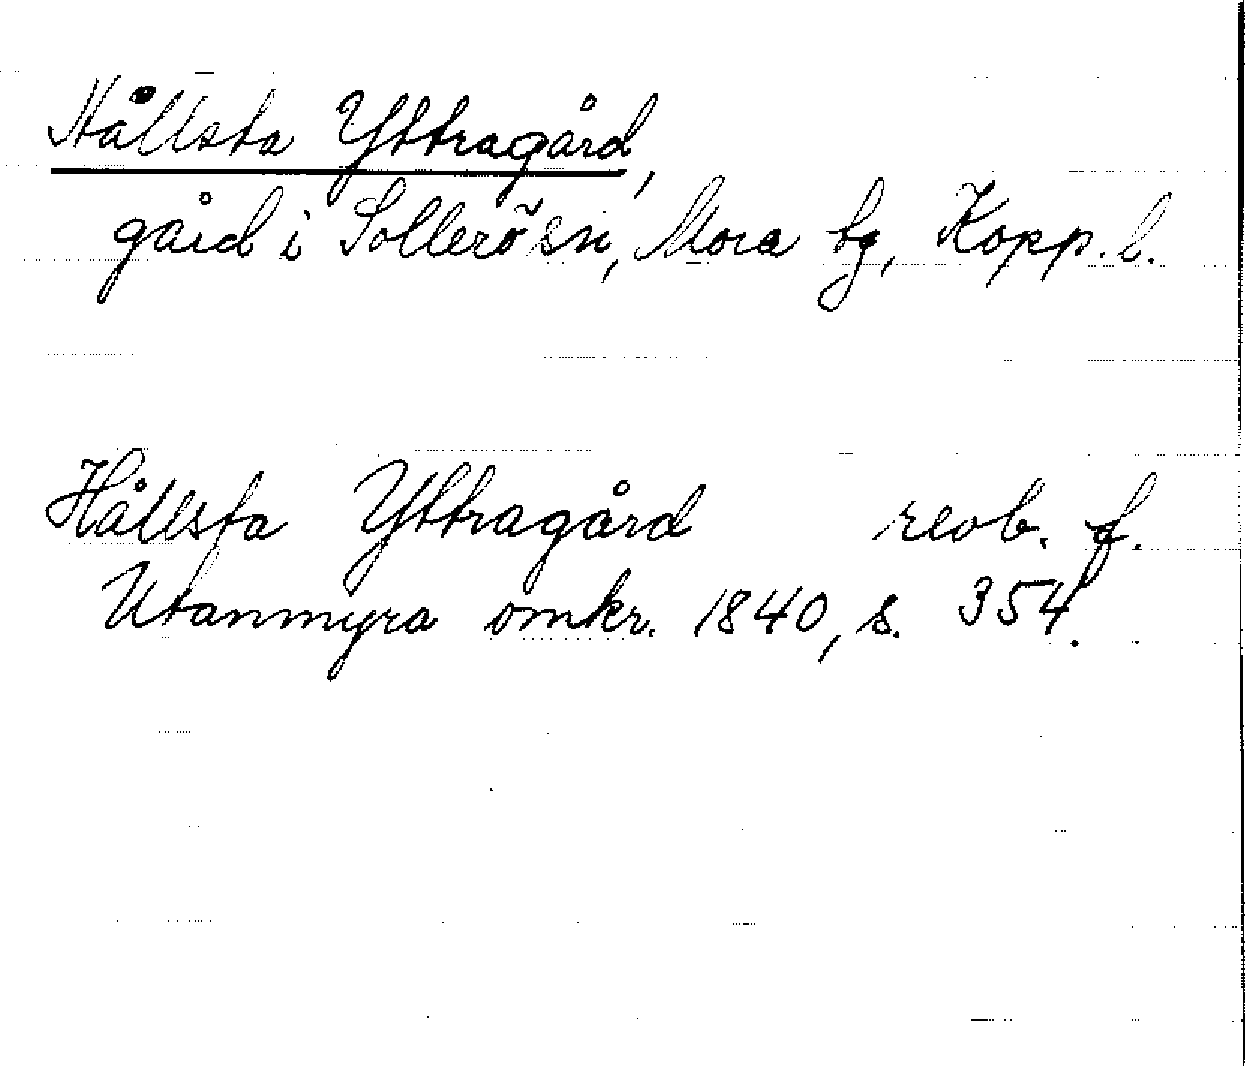 Hållsta Yttragård,
gård i Sollerösn, Mora bg, Kopp. l.
Hållsta Yttragård renb. f.
Utanmyra omkr. 1840, s. 354.